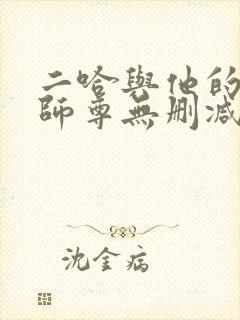 二哈與他的
師尊無刪減
沈金病